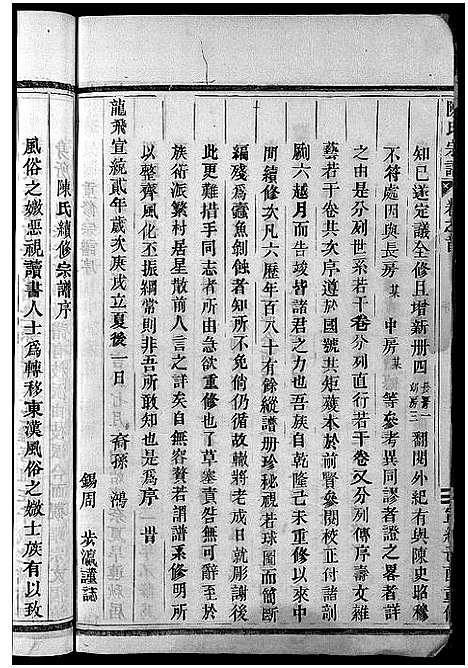 陳氏宗譜 卷之首
知己遂定議全修且增新册四長房一幼房三翻閱外紀有與陳史昭穆
不符處因與長房某中房某等參考異同謬者證之畧者詳
之由是分列世系若干卷分列直行若干卷又分列傳序壽文雜
藝若干卷其次序遵以國號其矩矱本於前賢參閱校正付諸剞
劂六越月而告竣皆諸君之力也吾族自乾隆己未重修以來中
間續修次凡六歷年百八十有餘縱譜册珍秘視若球圖而簡斷
編殘爲蠹魚剝蝕者知所不免倘仍循故轍將老成日就彫謝後
此更難措手同志者所由急欲重修也了草塞責無可辭至於
族術派繁村居星散前人言之詳矣自無容贅若謂譜系修明所
以整齊風化丕振綱常則非吾所敢知也是爲序 旹
龍飛宣統貳年歲次庚戌立夏後一日 裔孫 鴻 錫周 步瀛謹誌
陳氏續修宗譜序
風俗之媺惡視讀書人士爲轉移東漢風俗之媺士族有以致